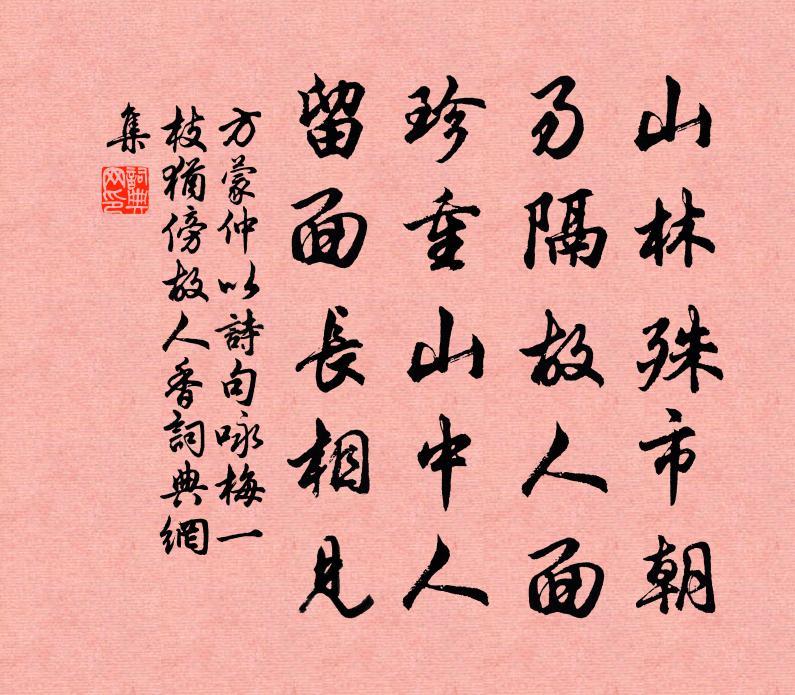 山林殊市朝
易隔故人面
珍重山中人
留面長相見
方蒙仲以詩句咏梅一
枝猶傍故人香詞典網
集
詞典
网印